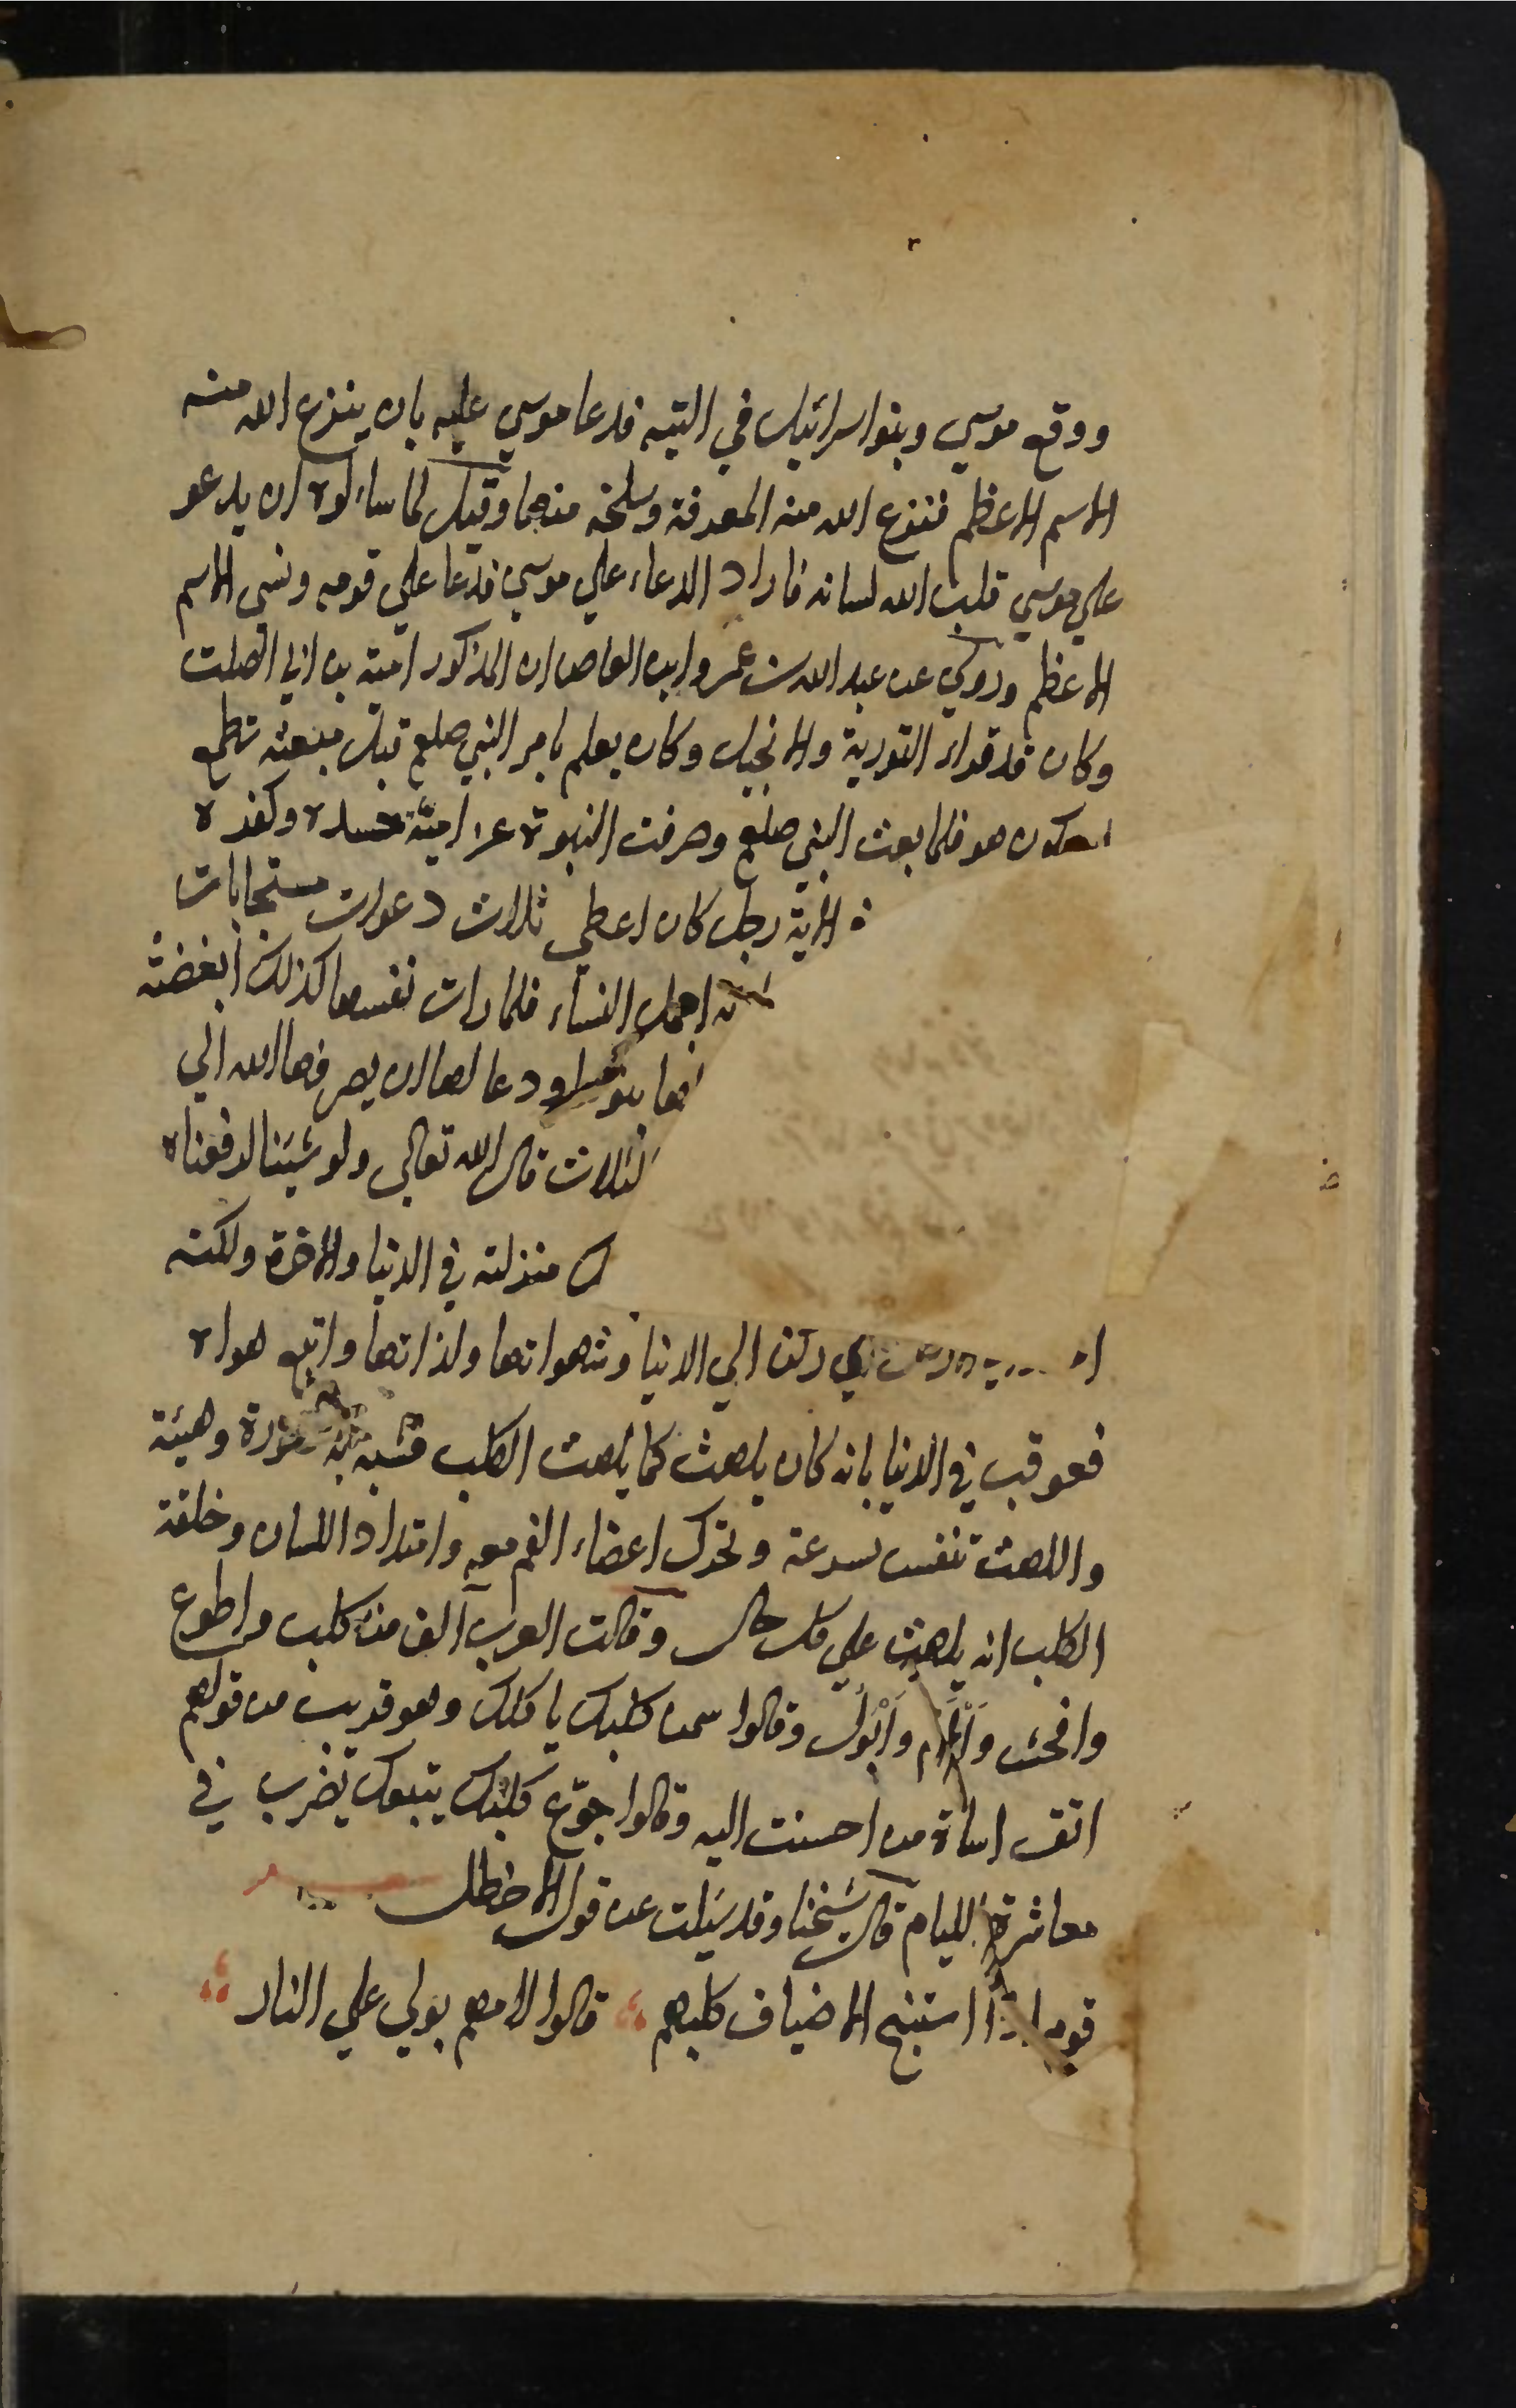 ووقع موسي وبنوا سرائيل في التيه فدعا موسي عليه بان ينزع الله منه
الاسم الاعظم فنزع الله منه المعرفة وسلخه منها وقيل لما ساءلوه ان يدعو
علي موسي قلب الله لسانه فاراد الدعاء علي موسي فدعا علي قومه ونسي الاسم
الاعظم وروي عن عبد الله بن عمرو ابن العاص ان المذكور امية بن ابي الصلت
وكان قد قراء التورية والانجيل وكان يعلم بامر النبي صلعم قبل مبعثه تطمع
ان يكون هو فلما بعث النبي صلعم وصرفت النبوة عن امية حسده وكفر
الاية رجل كان اعطي ثلاث دعوات مستجابات
اجمل النساء فلما رات نفسها كذلك ابغضته
ودعا لها ان يصرفها الله الي
الثلاث قال الله تعالي ولو شينا لرفعناه
منزلته في الدنيا والاخرة ولكنه
ركن الي الدنيا وشهواتها ولذاتها واتبع هواه
فعوقب في الدنيا بانه كان يلهث كما يلهث الكلب فشبه به صورة وهيئة
واللهث تنفس بسرعة وتحرك اعضاء الفم معه وامتداد اللسان وخلقة
الكلب انه يلهث علي كل حال وقالت العرب آلف من كلب واطوع
وافحش وَاَلْاَم واَبْوَل وقالوا سمن كلبك ياكلك وهو قريب من قولهم
اتق اساة من احسنت اليه وقالوا جوّع كلبك يتبعك يضرب في
معاشرة الليام قال شيخنا وقد سيلت عن قول الاخطل
قوم اذا استنبح الاضياف كلبهم قالوا لامهم بولي علي النار